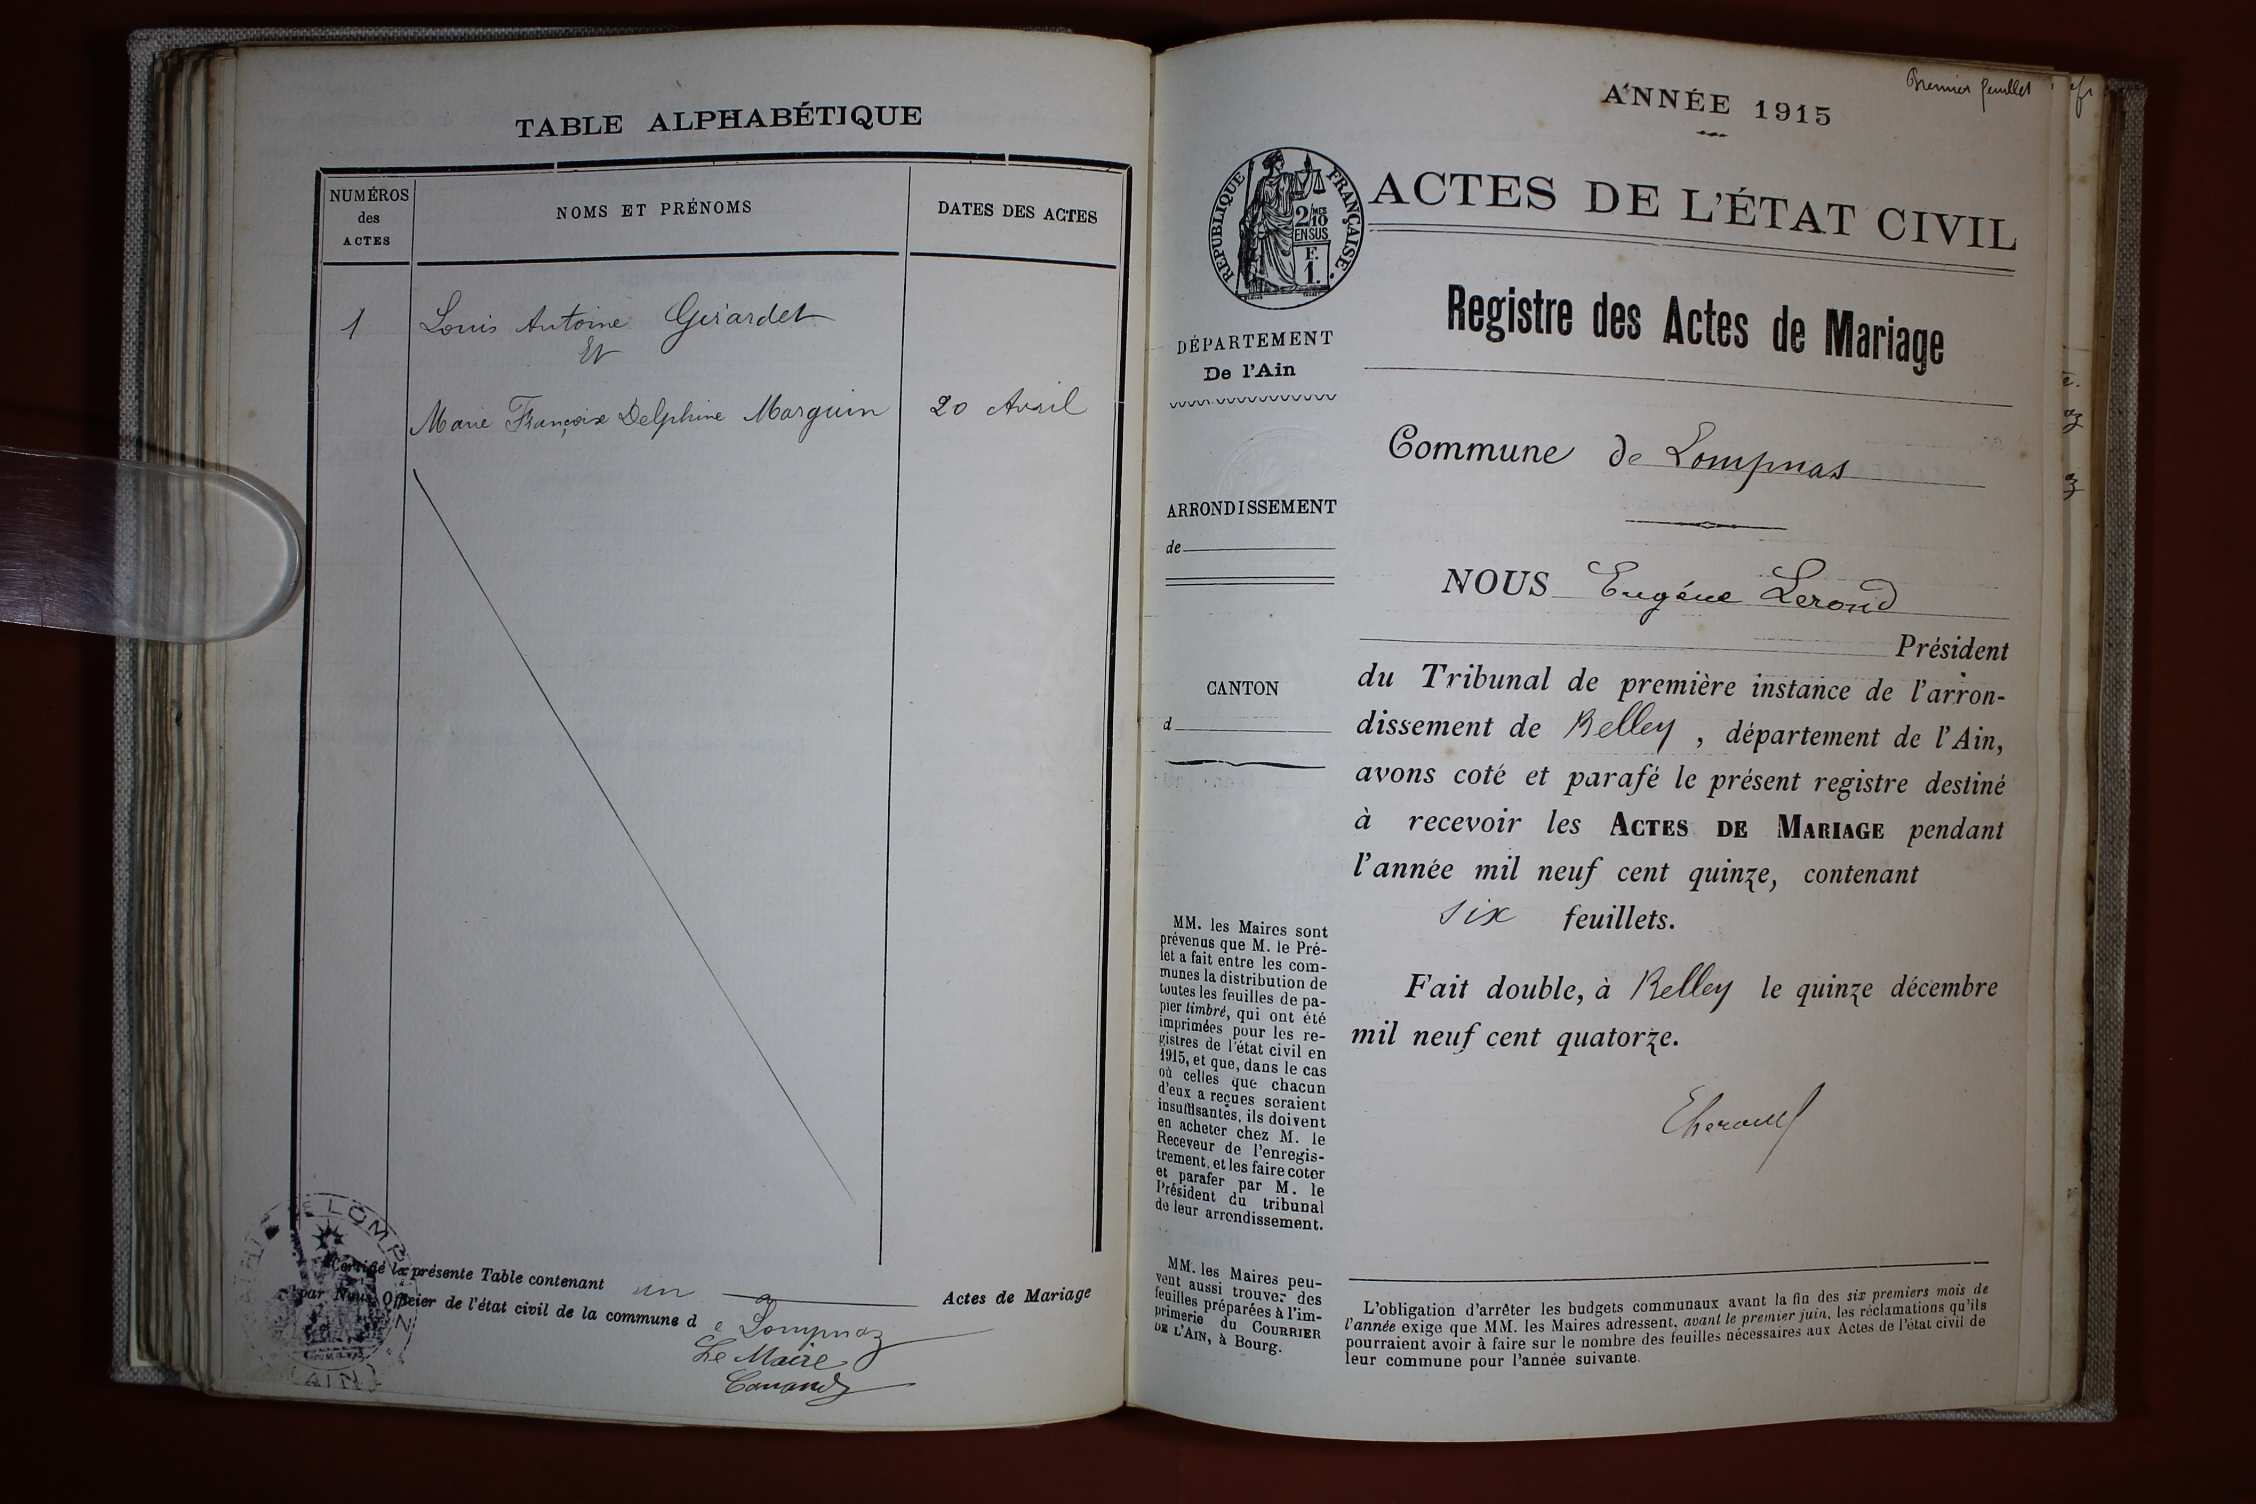 TABLE ALPHABÉTIQUE
NUMÉROS
des
ACTES
NOMS ET PRÉNOMS
DATES DES ACTES
1
Louis Antoine Girardet
Et
Marie Françoise Delphine Marguin
20 Avril
Certifié la présente Table contenant un Actes de Mariage
par Nous Officier de l'état civil de la commune d e Lompnaz
Le Maire
LOMP
(AIN)
Premier feuillet
ANNÉE 1915
RÉPUBLIQUE FRANÇAISE
2/10
MES
EN SUS
F.
1.
ACTES DE L'ÉTAT CIVIL
Registre des Actes de Mariage
DÉPARTEMENT
De l'Ain
Commune de Lompnas
ARRONDISSEMENT
de
CANTON
d
NOUS Eugène Lerond
Président
du Tribunal de première instance de l'arron-
dissement de Belley, département de l'Ain,
avons coté et parafé le présent registre destiné
à recevoir les ACTES DE MARIAGE pendant
l'année mil neuf cent quinze, contenant
six feuillets.
Fait double, à Belley le quinze décembre
mil neuf cent quatorze.
MM. les Maires sont
prévenus que M. le Pré-
fet a fait entre les com-
munes la distribution de
toutes les feuilles de pa-
pier timbré, qui ont été
imprimées pour les re-
gistres de l'état civil en
1915, et que, dans le cas
où celles que chacun
d'eux a reçues seraient
insuffisantes, ils doivent
en acheter chez M. le
Receveur de l'enregis-
trement, et les faire coter
et parafer par M. le
Président du tribunal
de leur arrondissement.
MM. les Maires peu-
vent aussi trouver des
feuilles préparées à l'im-
primerie du COURRIER
DE L'AIN, à Bourg.
L'obligation d'arrêter les budgets communaux avant la fin des six premiers mois de
l'année exige que MM. les Maires adressent, avant le premier juin, les réclamations qu'ils
pourraient avoir à faire sur le nombre des feuilles nécessaires aux Actes de l'état civil de
leur commune pour l'année suivante.